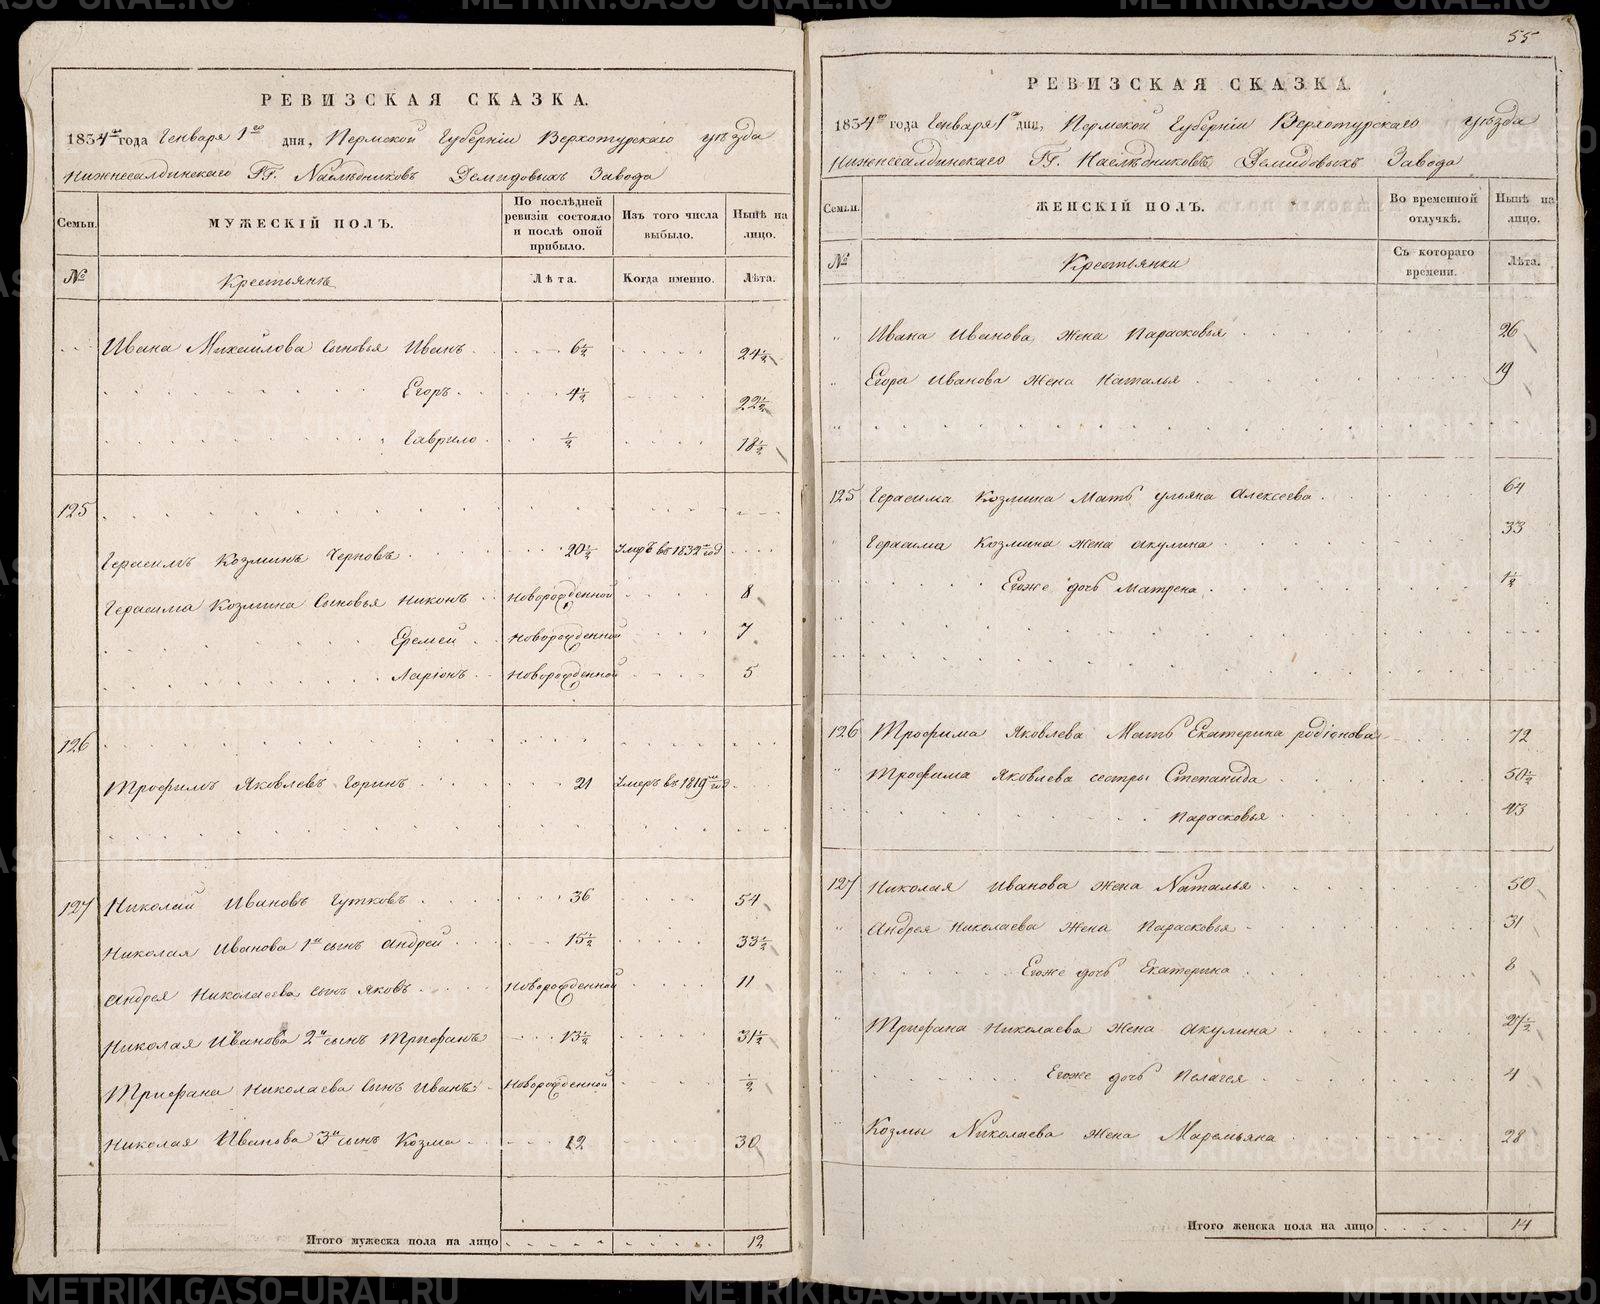 РЕВИЗСКАЯ СКАЗКА.
1834го года Генваря 1го дня, Пермской Губернiи Верхотурскаго уѣзда
Нижнесалдинскаго ГГ. Наслѣдниковъ Демидовыхъ Завода
Семьи.
МУЖЕСКIЙ ПОЛЪ.
По послѣдней ревизiи состояло и послѣ оной прибыло.
Изъ того числа выбыло.
Нынѣ на лицо.
№
Крестьянъ
Лѣта.
Когда именно.
Лѣта.
Ивана Михайлова сыновья Иванъ 6½ 24½
Егоръ 4½ 22½
Гаврило ½ 18½
125
Герасимъ Козминъ Черновъ 20½ Умеръ въ 1832м год
Герасима Козмина Сыновья Никонъ Новорожденной 8
Еремей Новорожденной 7
Ларiонъ Новорожденной 5
126
Трофимъ Яковлевъ Горинъ 21 Умеръ въ 1819м год
127 Николай Ивановъ Гутковъ 36 54
Николая Иванова 1й сынъ Андрей 15½ 33½
Андрея Николаева сынъ Яковъ Новорожденной 11
Николая Иванова 2й сынъ Трифанъ 13½ 31½
Трифана Николаева Сынъ Иванъ Новорожденной ½
Николая Иванова 3й сынъ Козма 12 30
Итого мужеска пола на лицо 12
55
РЕВИЗСКАЯ СКАЗКА.
1834го года Генваря 1го дня, Пермской Губернiи Верхотурскаго уѣзда
Нижнесалдинскаго ГГ. Наслѣдниковъ Демидовыхъ Завода
Семьи.
ЖЕНСКIЙ ПОЛЪ.
Во временной отлучкѣ.
Нынѣ на лицо.
№
Крестьянки
Съ котораго времени.
Лѣта.
Ивана Иванова жена Парасковья 26
Егора Иванова жена Наталья 19
125 Герасима Козмина Мать ульяна Алексеева 64
Герасима Козмина жена акулина 33
Егоже дочь Матрена 1½
126 Трофима Яковлева Мать Екатерина родiонова 72
Трофима Яковлева сестры Степанида 50½
Парасковья 43
127 Николая Иванова жена Наталья 50
Андрея Николаева жена Парасковья 31
Егоже дочь Екатерина 8
Трифана Николаева жена акулина 27½
Егоже дочь Пелагея 4
Козмы Николаева жена Маремьяна 28
Итого женска пола на лицо 14
METRIKI.GASO-URAL.RU